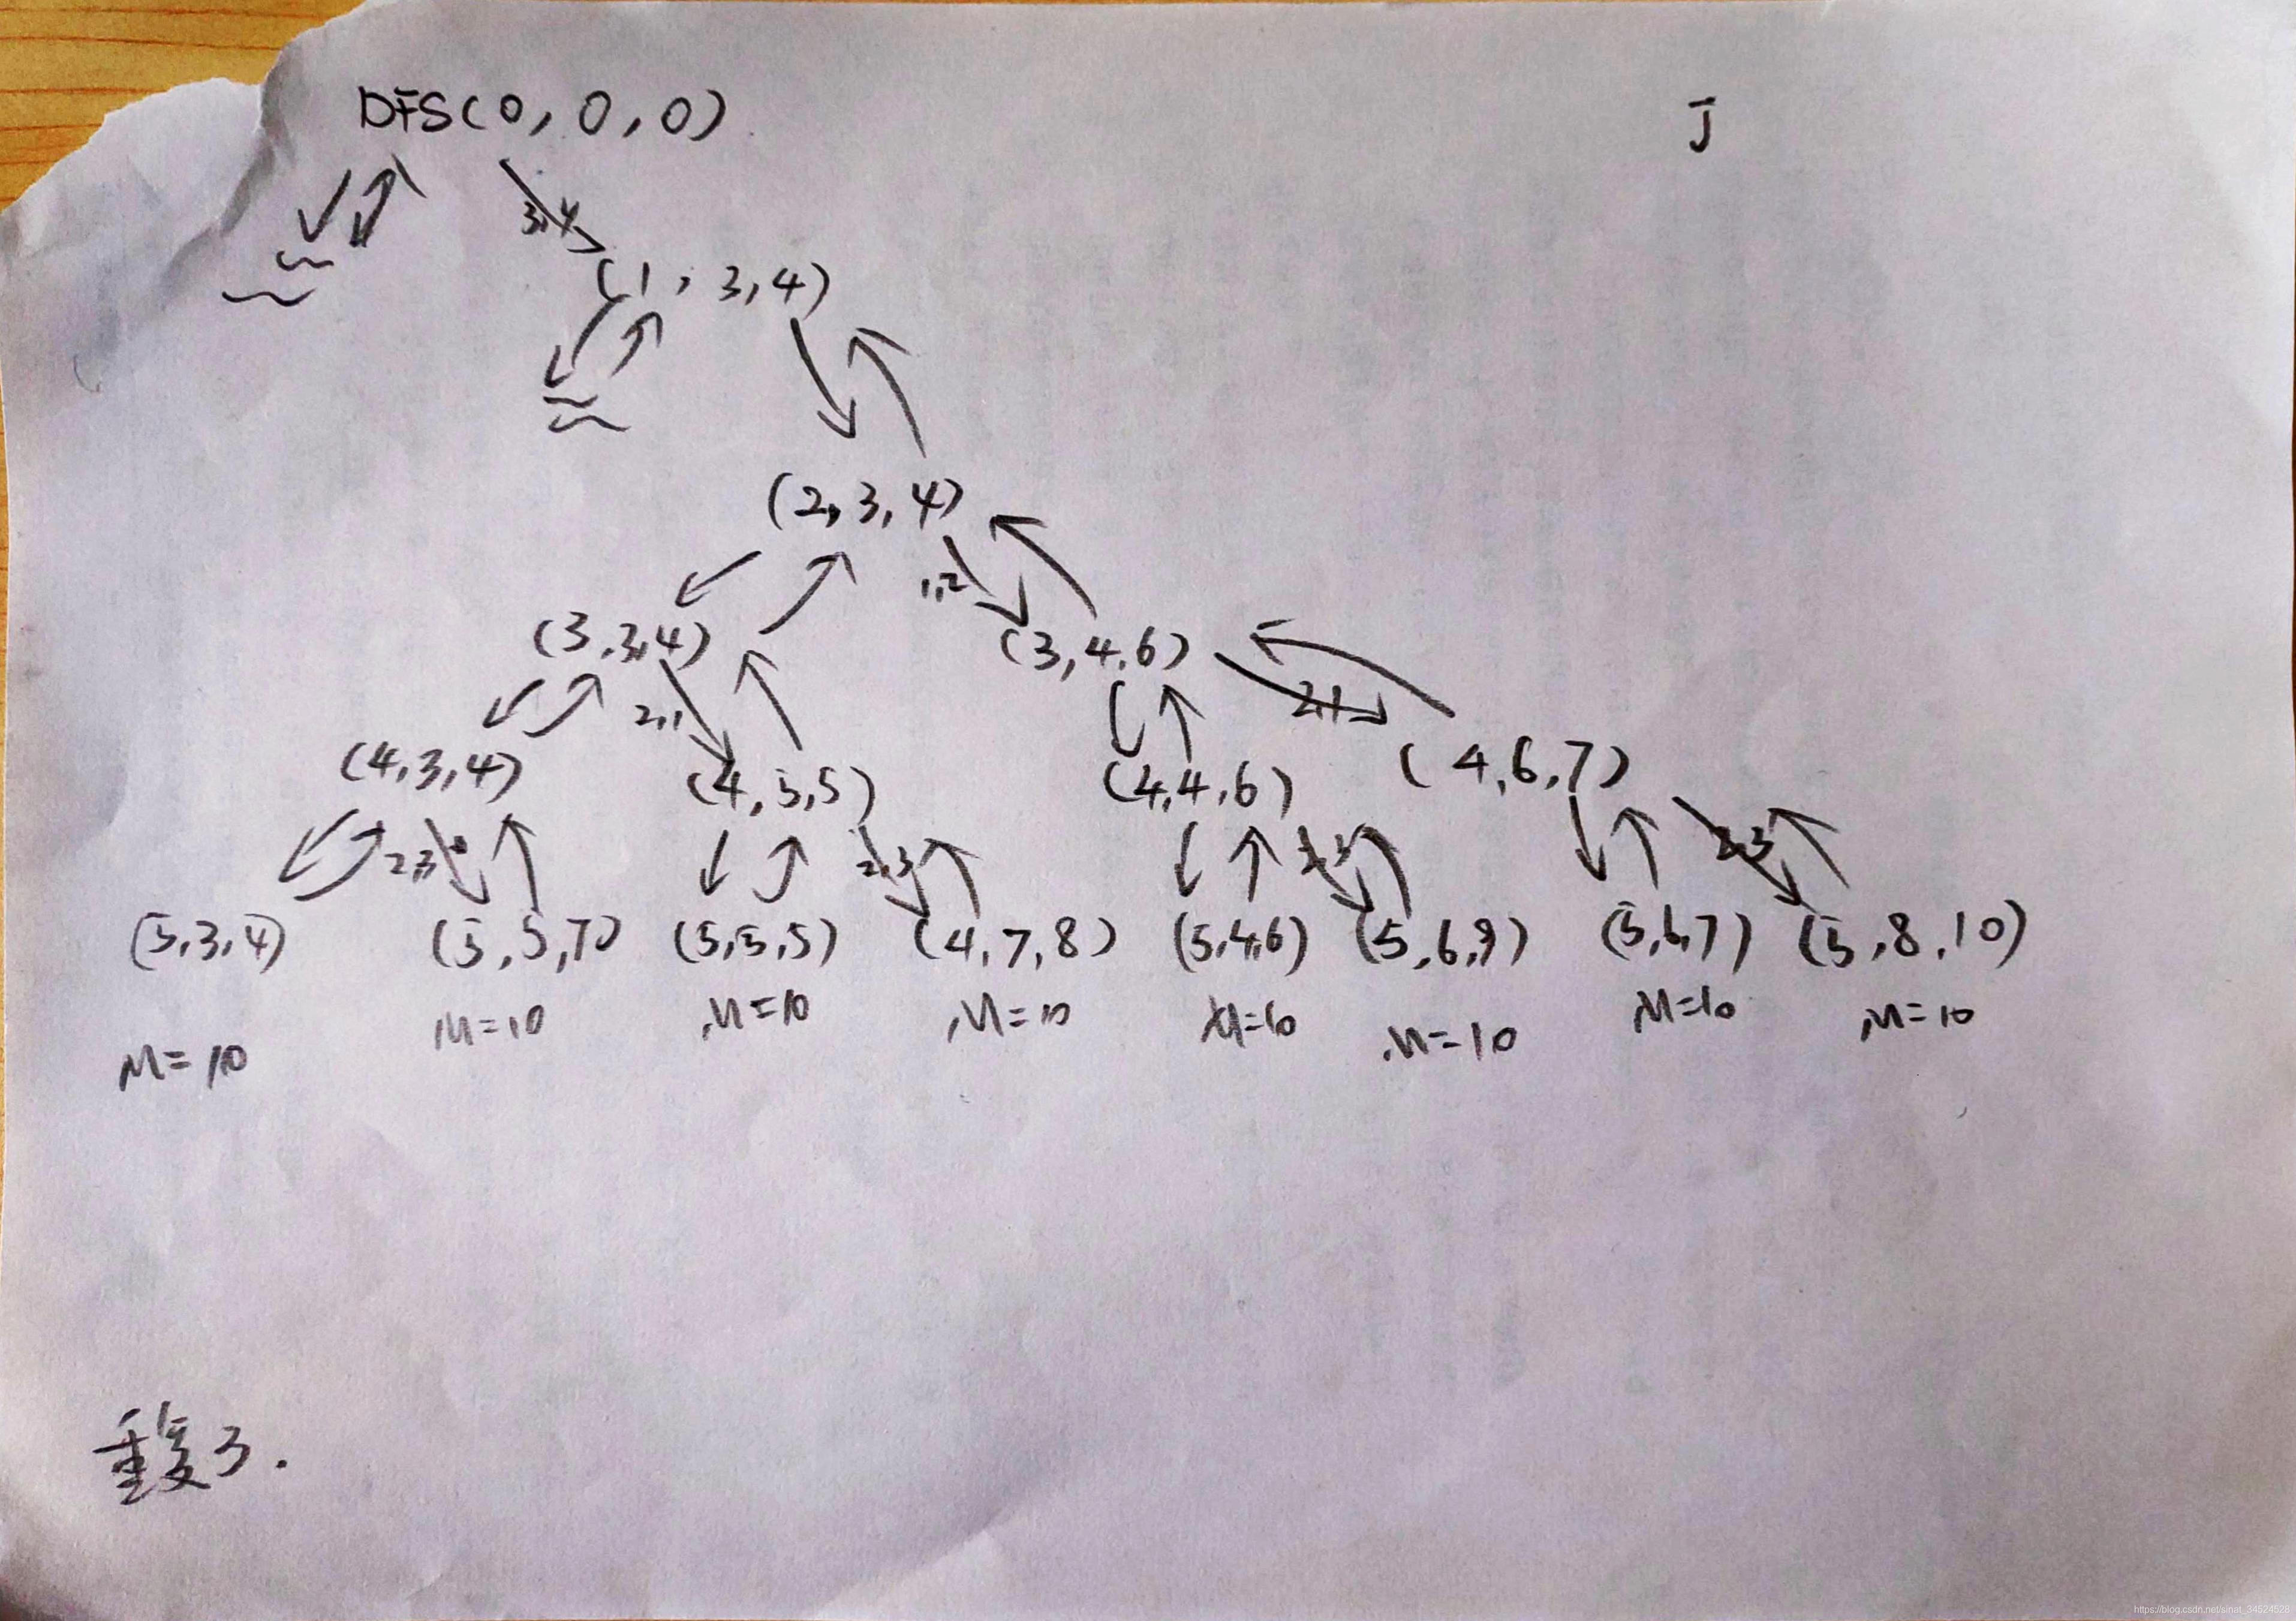 DFS(0, 0, 0)
J
3,4
(1, 3,4)
(2,3,4)
1,2
(3,3,4)
(3,4,6)
2,1
2,1
(4,3,4)
(4,5,5)
(4,4,6)
(4,6,7)
2,3
2,3
2,3
2,3
(5,3,4)
(5,5,7)
(5,5,5)
(4,7,8)
(5,4,6)
(5,6,9)
(5,6,7)
(5,8,10)
M=10
M=10
M=10
M=10
M=10
M=10
M=10
M=10
重复了.
https://blog.csdn.net/sinat_34524528